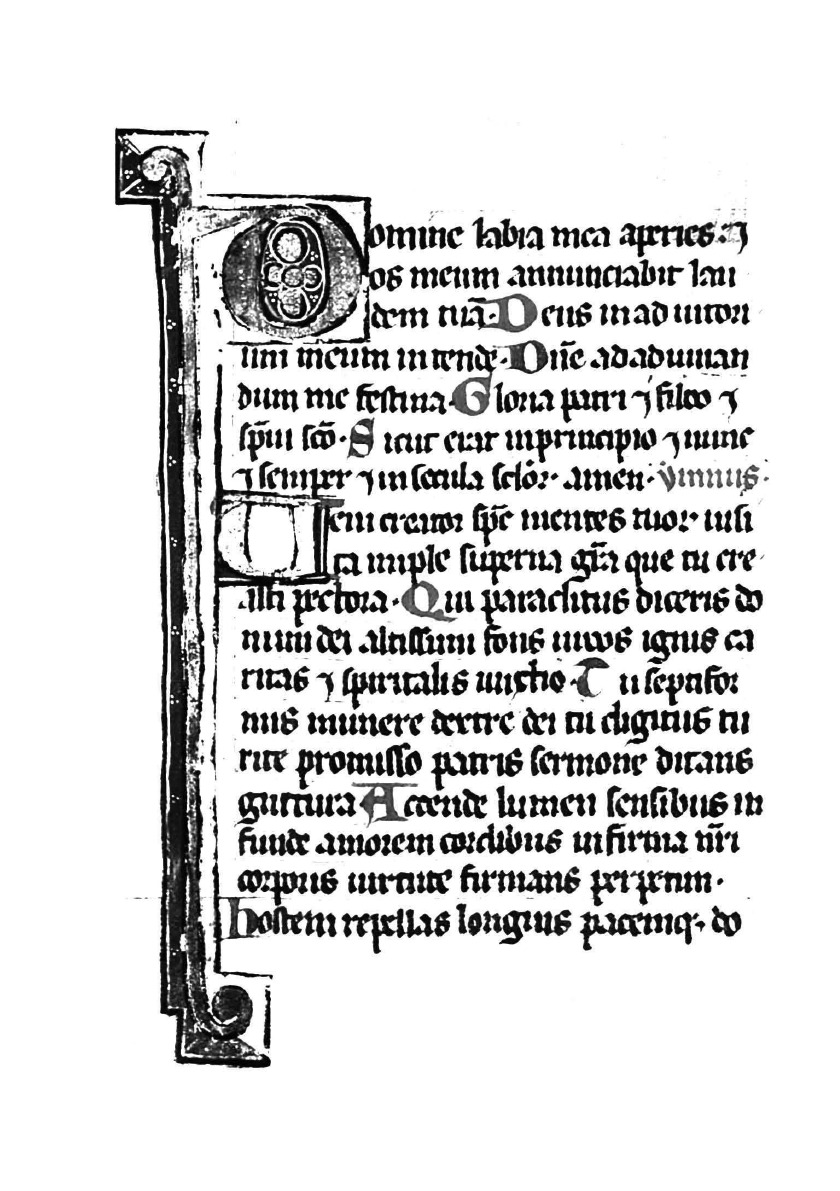 Domine labia mea aperies. ⁊
os meum annunciabit lau
dem tuā. Deus in adiutori
um meum intende. Dn̄e ad adiuuan
dum me festina. Gloria patri ⁊ filio ⁊
sp̄ui sc̄o. Sicut erat in principio ⁊ nunc
⁊ semper ⁊ in secula sclōr. amen. ymnus.
Ueni creator sp̄c mentes tuor uisi
ta imple superna gr̄a que tu cre
asti pectora. Qui paraclitus diceris do
num dei altissimi fons uiuos ignis ca
ritas ⁊ spiritalis unctio. Tu septifor
mis munere dextre dei tu digitus tu
rite promisso patris sermone ditans
guttura Accende lumen sensibus in
funde amorem cordibus infirma nr̄i
corporis uirtute firmans perpetim.
hostem repellas longius pacemq; do